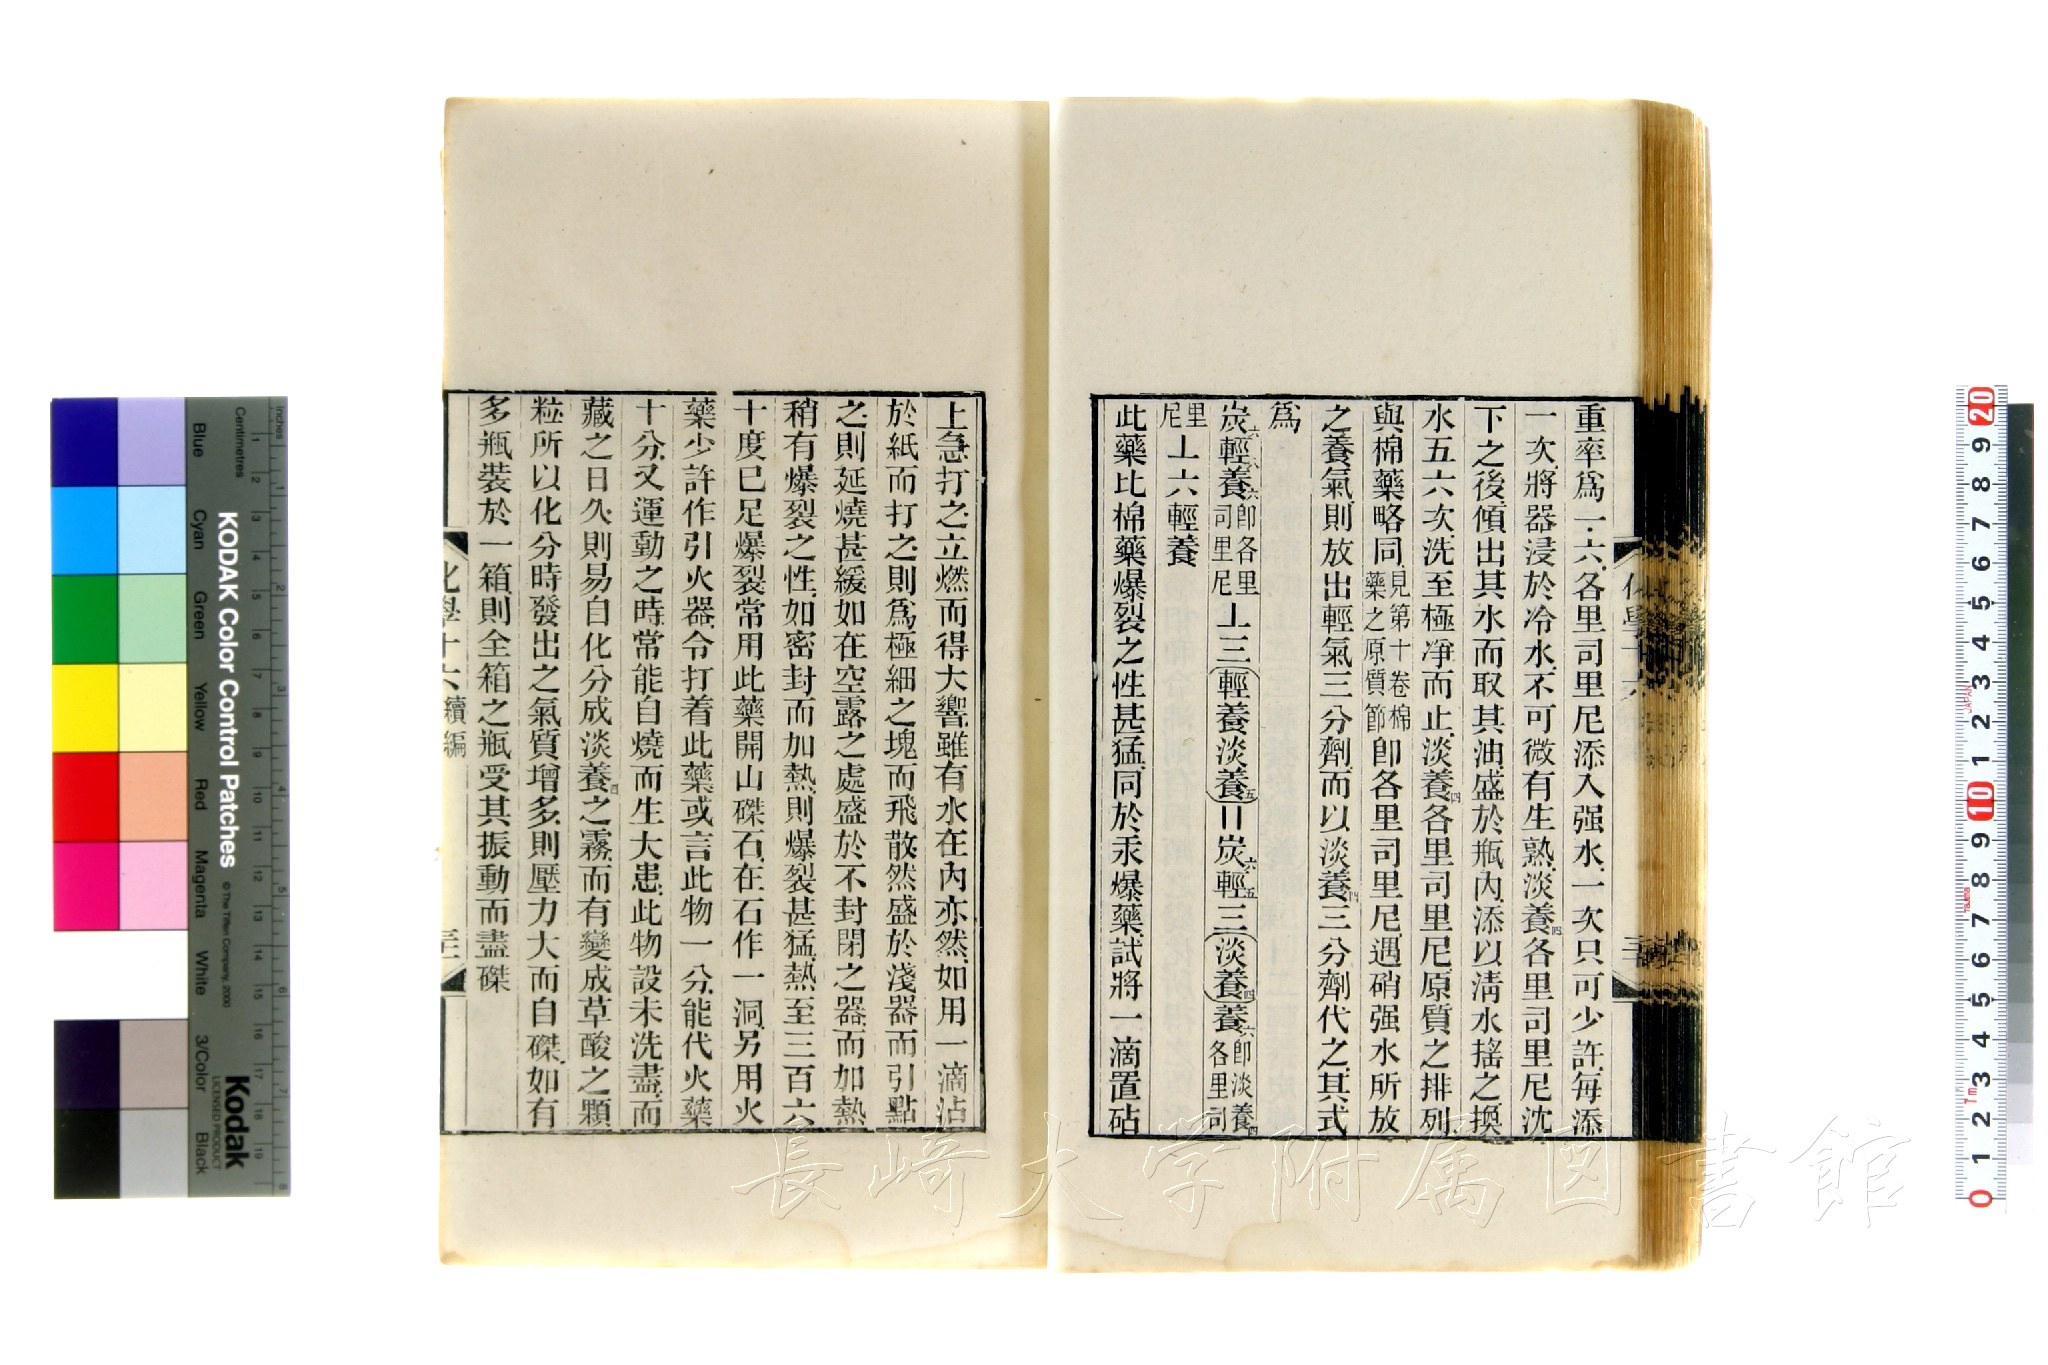 重率爲一·六各里司里尼添入强水一次只可少許每添
一次將器浸於冷水不可微有生熱淡養四各里司里尼沈
下之後傾出其水而取其油盛於瓶內添以清水搖之換
水五六次洗至極凈而止淡養四各里司里尼原質之排列
與棉藥略同見第十卷棉藥之原質節卽各里司里尼遇硝强水所放
之養氣則放出輕氣三分劑而以淡養四三分劑代之其式
爲
炭六輕八養六卽各里司里尼⊥三(輕養淡養五)=炭六輕五三(淡養四)養六卽淡養四各里司
里尼⊥六輕養
此藥比棉藥爆裂之性甚猛同於汞爆藥試將一滴置砧
上急打之立燃而得大響雖有水在內亦然如用一滴沾
於紙而打之則爲極細之塊而飛散然盛於淺器而引點
之則延燒甚緩如在空露之處盛於不封閉之器而加熱
稍有爆裂之性如密封而加熱則爆裂甚猛熱至三百六
十度已足爆裂常用此藥開山磔石在石作一洞另用火
藥少許作引火器令打着此藥或言此物一分能代火藥
十分又運動之時常能自燒而生大患此物設未洗盡而
藏之日久則易自化分成淡養四之霧而有變成草酸之顆
粒所以化分時發出之氣質增多則壓力大而自磔如有
多瓶裝於一箱則全箱之瓶受其振動而盡磔
化學十六 續編
長崎大学附属図書館
KODAK Color Control Patches
© The Tiffen Company, 2000
Kodak
LICENSED PRODUCT
Inches
Centimetres
Blue
Cyan
Green
Yellow
Red
Magenta
White
3/Color
Black
1 2 3 4 5 6 7 8
1 2 3 4 5 6 7 8 9 10 11 12 13 14 15 16 17 18 19
20 9 8 7 6 5 4 3 2 1 10 9 8 7 6 5 4 3 2 1 0
JAPAN
TAJIMA
1m